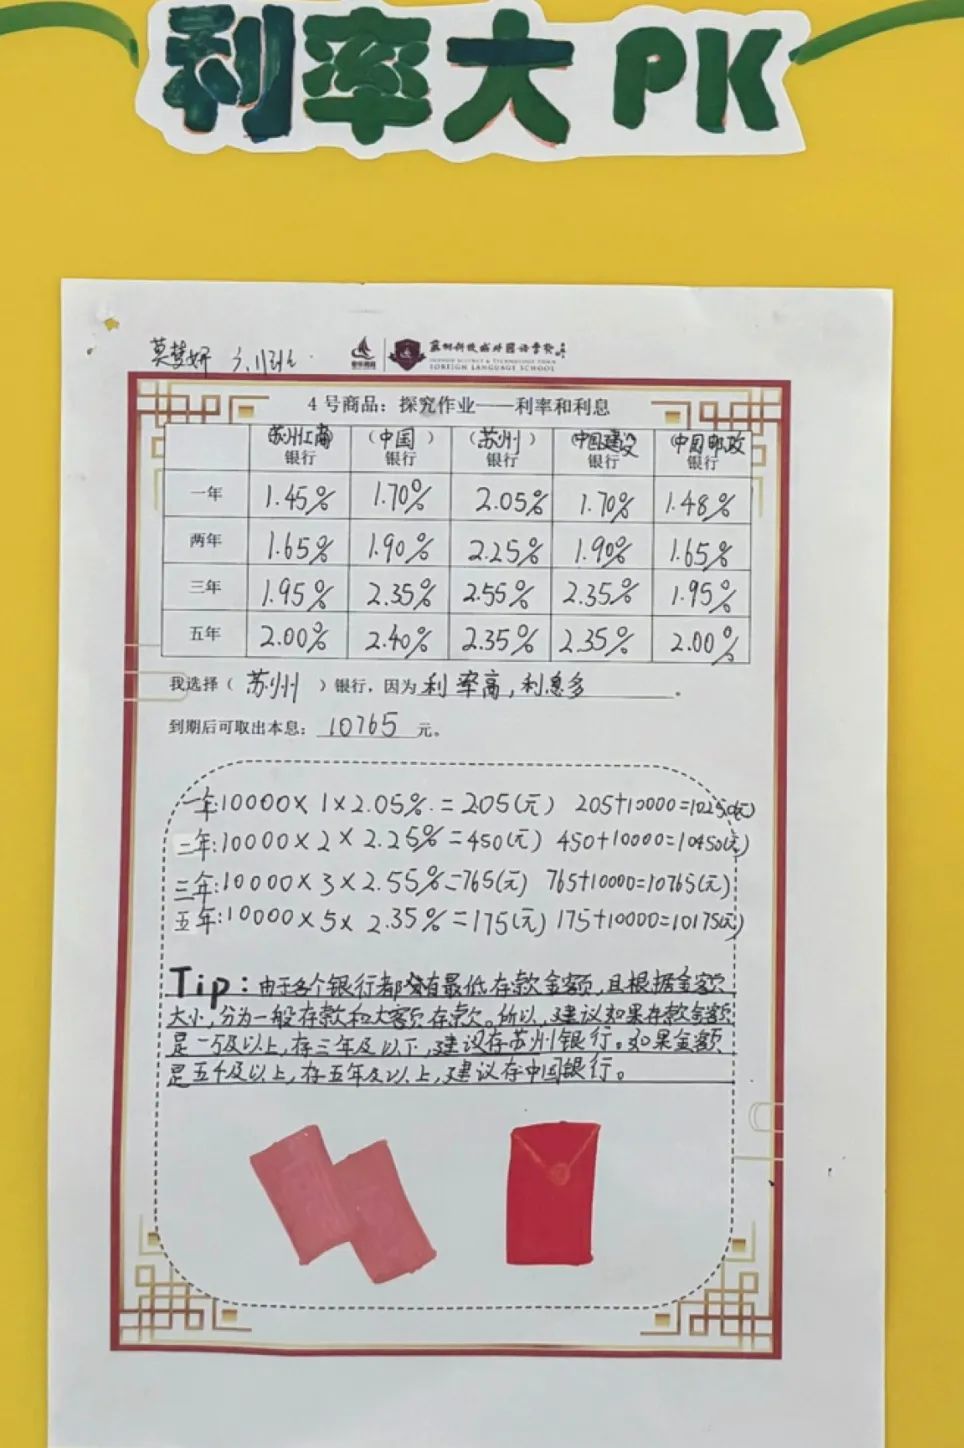 利率大PK
莫梦妍 六.1班
苏州科技城外国语学校
SUZHOU SCIENCE & TECHNOLOGY TOWN
FOREIGN LANGUAGE SCHOOL
4号商品：探究作业——利率和利息
（苏州工商）银行 （中国）银行 （苏州）银行 （中国建设）银行 （中国邮政）银行
一年 1.45% 1.70% 2.05% 1.70% 1.48%
两年 1.65% 1.90% 2.25% 1.90% 1.65%
三年 1.95% 2.35% 2.55% 2.35% 1.95%
五年 2.00% 2.40% 2.35% 2.35% 2.00%
我选择（ 苏州 ）银行，因为利率高，利息多。
到期后可取出本息：10765元。
一年:10000×1×2.05%.=205(元) 205+10000=10250(元)
二年:10000×2×2.25%=450(元) 450+10000=10450(元)
三年:10000×3×2.55%=765(元) 765+10000=10765(元)
五年:10000×5×2.35%=175(元) 175+10000=10175(元)
Tip:由于各个银行都有最低存款金额,且根据金额
大小,分为一般存款和大额存款。所以,建议如果存款金额
是一万及以上,存三年及以下,建议存苏州银行。如果金额
是五千及以上,存五年及以上,建议存中国银行。